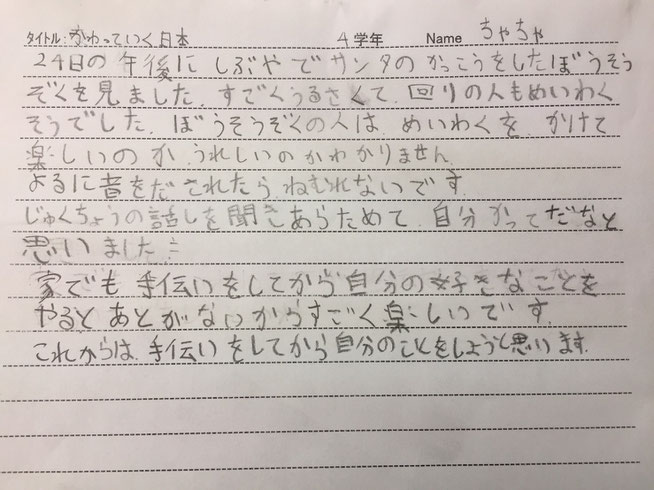 タイトル: かわっていく日本 4学年 Name ちゃちゃ
24日の午後にしぶやでサンタのかっこうをしたぼうそう
ぞくを見ました。すごくうるさくて、回りの人もめいわく
そうでした。ぼうそうぞくの人は、めいわくを、かけて
楽しいのか、うれしいのかわかりません。
よるに音をだされたら、ねむれないです。
じゅくちょうの話しを聞きあらためて、自分かってだなと
思いました。
家でも手伝いをしてから自分の好きなことを
やるとあとがないからすごく楽しいです。
これからは、手伝いをしてから自分のことをしようと思います。